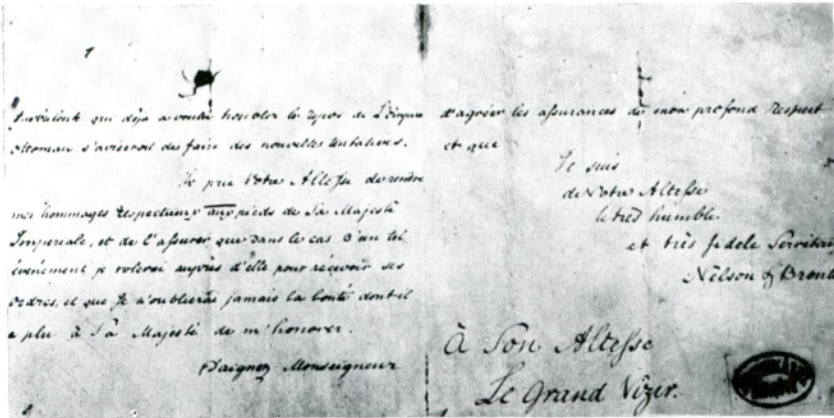 turbulent qui déja a voulu troubler le repos de l'Empire
Ottoman s'aviseroit de faire des nouvelles tentatives.
Je prie Votre Altesse de rendre
mes hommages respectueux aux pieds de Sa Majesté
Imperiale, et de l'assurer que dans le cas d'un tel
évenément je volerai auprès d'elle pour recevoir ses
ordres, et que je n'oublierai jamais la bonté dont il
a plu à Sa Majesté de m'honorer.
Daignez Monseigneur
d'agréer les assurances de mon profond respect
et que
Je suis
de Votre Altesse
le très humble
et très fidele Serviteur
Nelson & Bronte
À Son Altesse
Le Grand Vizir.